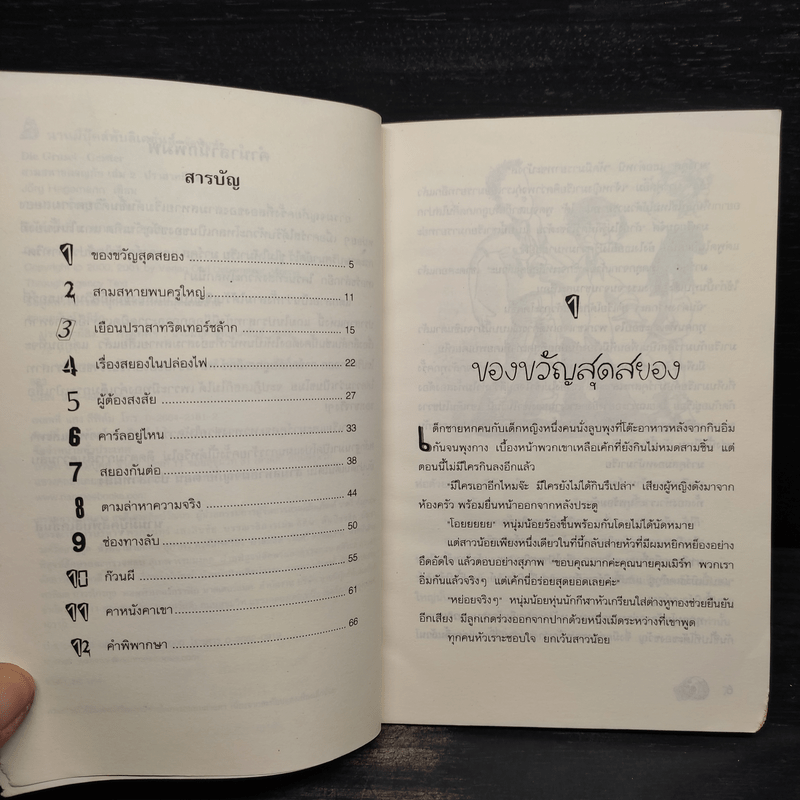 สารบัญ
1 ของขวัญสุดสยอง ... 5
2 สามสหายพบครูใหญ่ ... 11
3 เยือนปราสาทริตเทอร์ชล้าก ... 15
4 เรื่องสยองในปล่องไฟ ... 22
5 ผู้ต้องสงสัย ... 27
6 คาร์ลอยู่ไหน ... 33
7 สยองกันต่อ ... 38
8 ตามล่าหาความจริง ... 44
9 ช่องทางลับ ... 50
10 ก๊วนผี ... 55
11 คาหนังคาเขา ... 61
12 คำพิพากษา ... 66
1
ของขวัญสุดสยอง
เด็กชายหกคนกับเด็กหญิงหนึ่งคนนั่งลูบพุงที่โต๊ะอาหารหลังจากกินอิ่ม
กันจนพุงกาง เบื้องหน้าพวกเขาเหลือเค้กที่ยังกินไม่หมดสามชิ้น แต่
ตอนนี้ไม่มีใครกินลงอีกแล้ว
"มีใครเอาอีกไหมจ๊ะ มีใครยังไม่ได้กินรึเปล่า" เสียงผู้หญิงดังมาจาก
ห้องครัว พร้อมยื่นหน้าออกจากหลังประตู
"โอยยยยย" หนุ่มน้อยร้องขึ้นพร้อมกันโดยไม่ได้นัดหมาย
แต่สาวน้อยเพียงหนึ่งเดียวในที่นี้กลับส่ายหัวที่มีผมหยิกเหยืองอย่าง
อึดอัดใจ แล้วตอบอย่างสุภาพ "ขอบคุณมากค่ะคุณนายคุมเมิร์ท พวกเรา
อิ่มกันแล้วจริงๆ แต่เค้กนี่อร่อยสุดยอดเลยค่ะ"
"หย่อยจริงๆ" หนุ่มน้อยหุ่นนักกีฬาหัวเกรียนใส่ต่างหูทองช่วยยืนยัน
อีกเสียง มีลูกเกดร่วงออกจากปากด้วยหนึ่งเม็ดระหว่างที่เขาพูด
ทุกคนหัวเราะชอบใจ ยกเว้นสาวน้อย